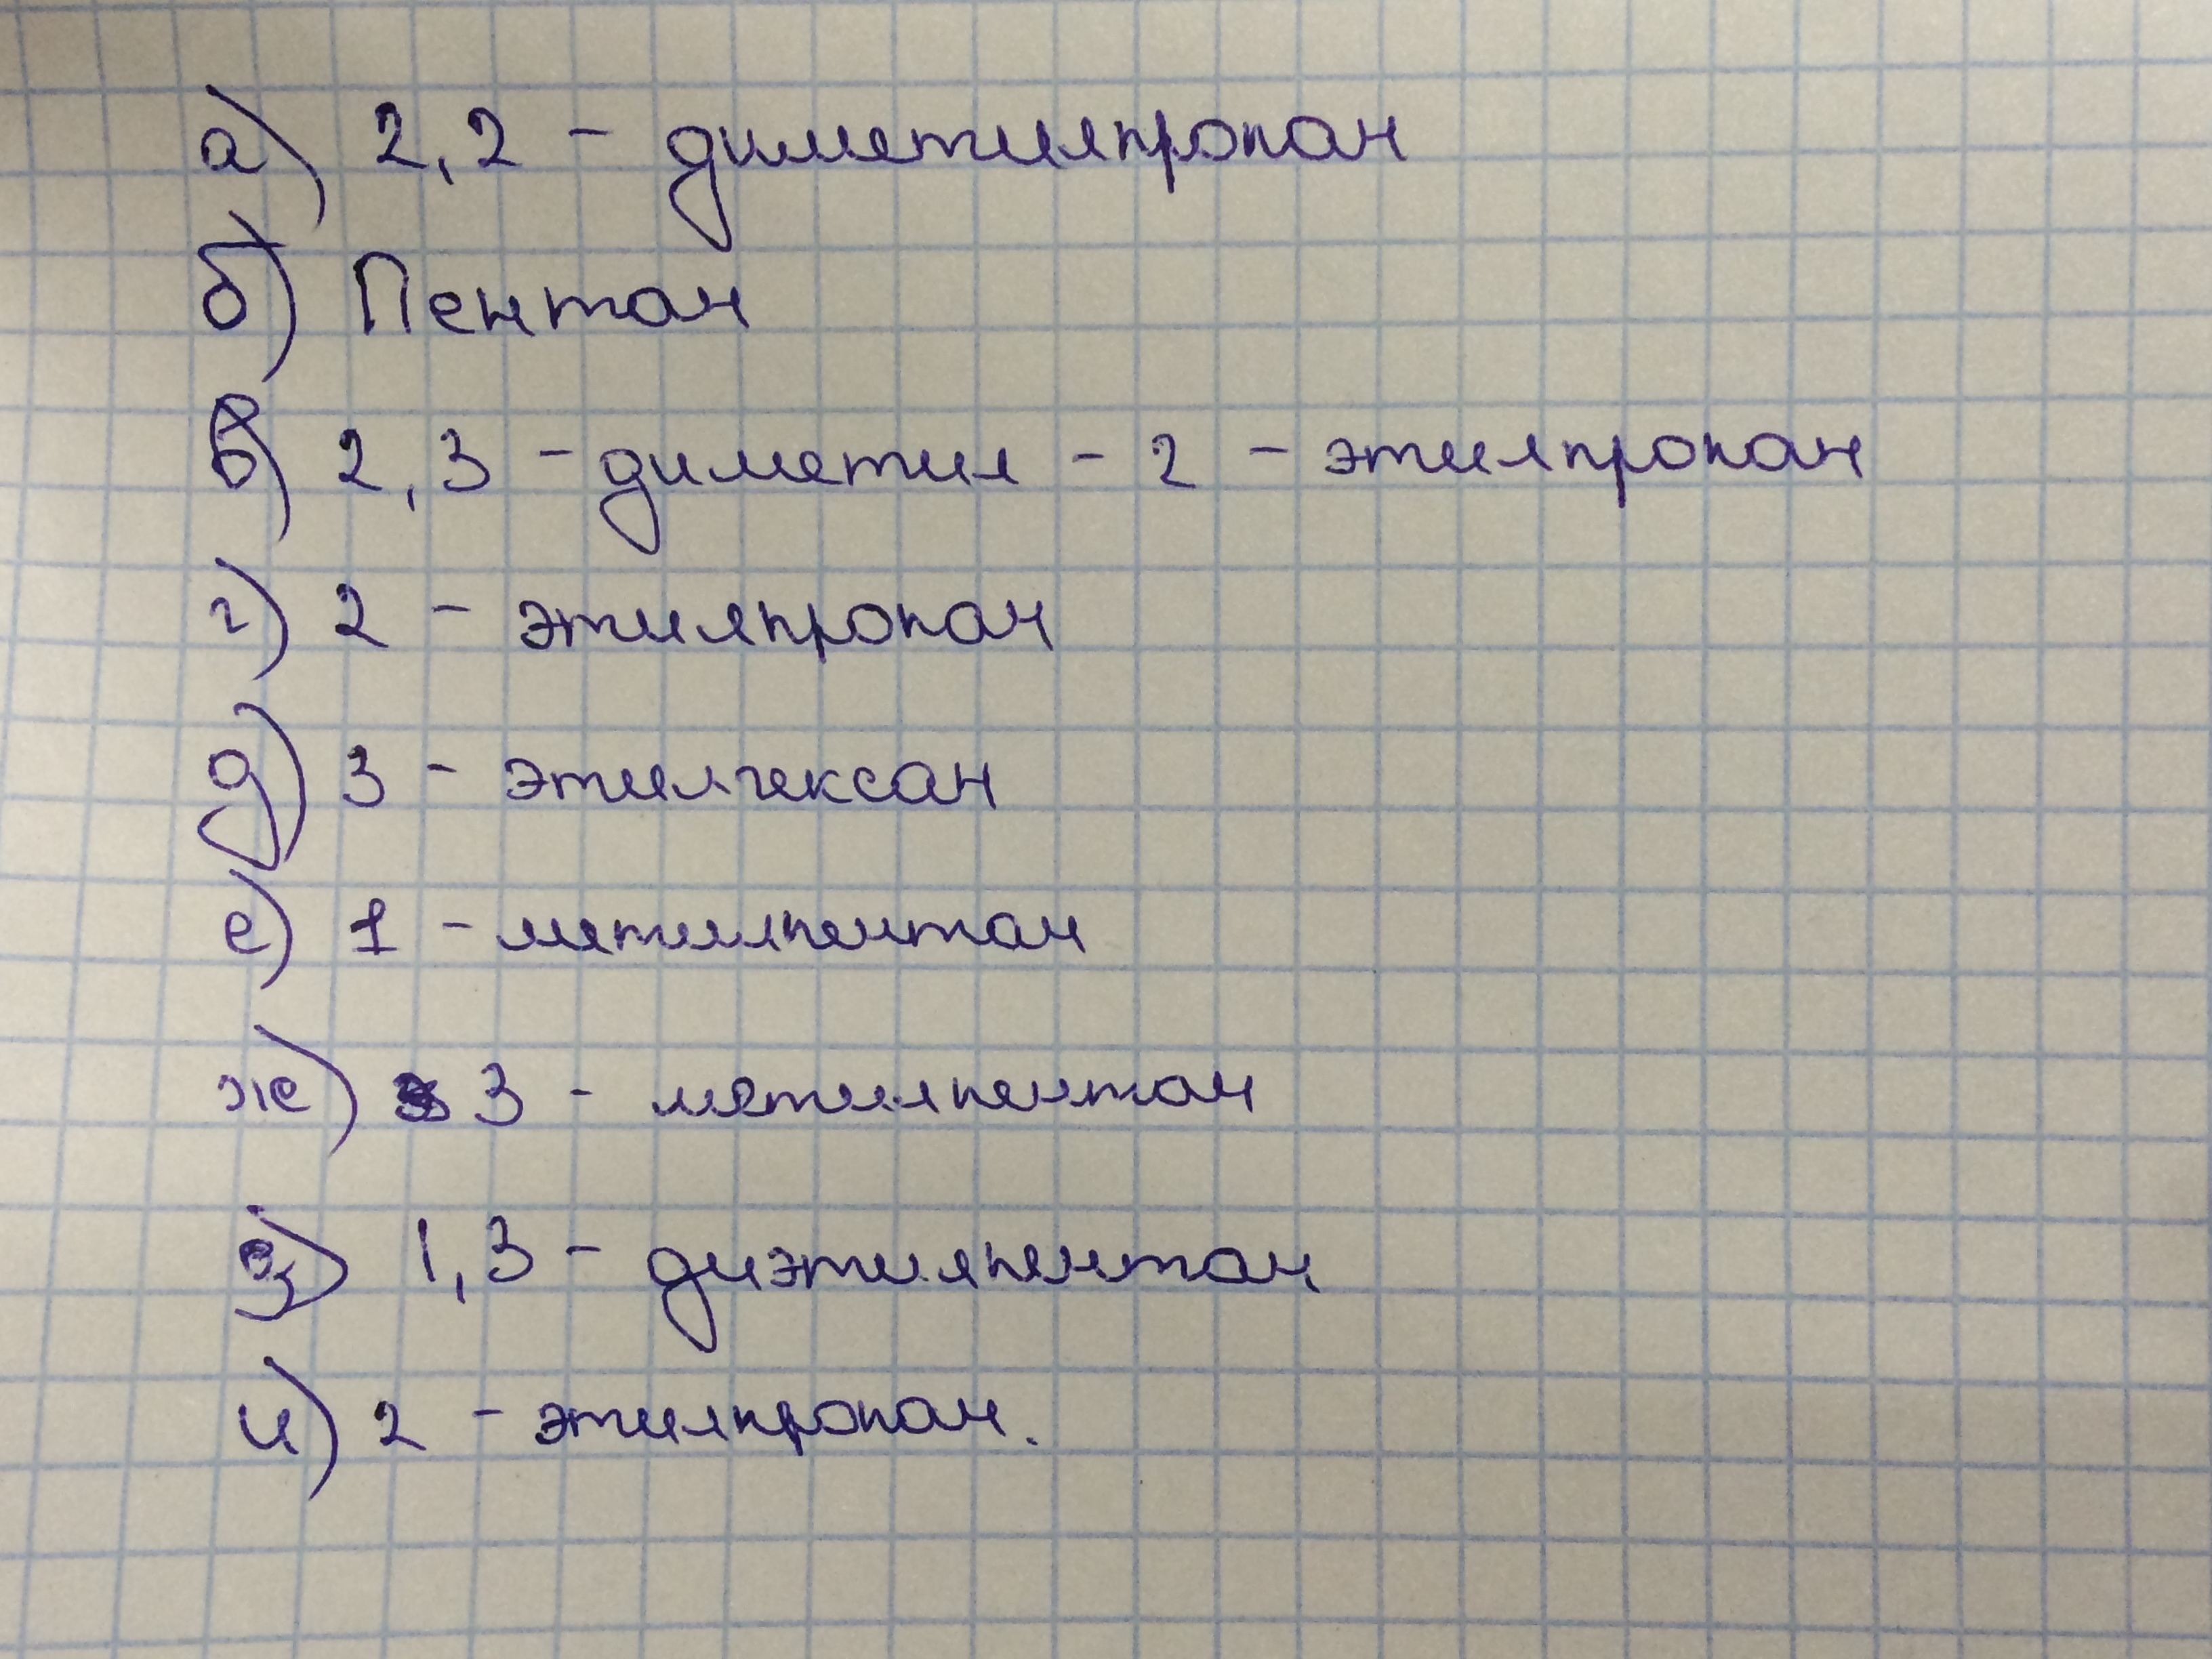 а) 2,2 - диметилпропан
б) Пентан
в) 2,3 - диметил - 2 - этилпропан
г) 2 - этилпропан
д) 3 - этилгексан
е) 1 - метилпентан
ж) 3 - метилпентан
з) 1,3 - диэтилпентан
и) 2 - этилпропан.